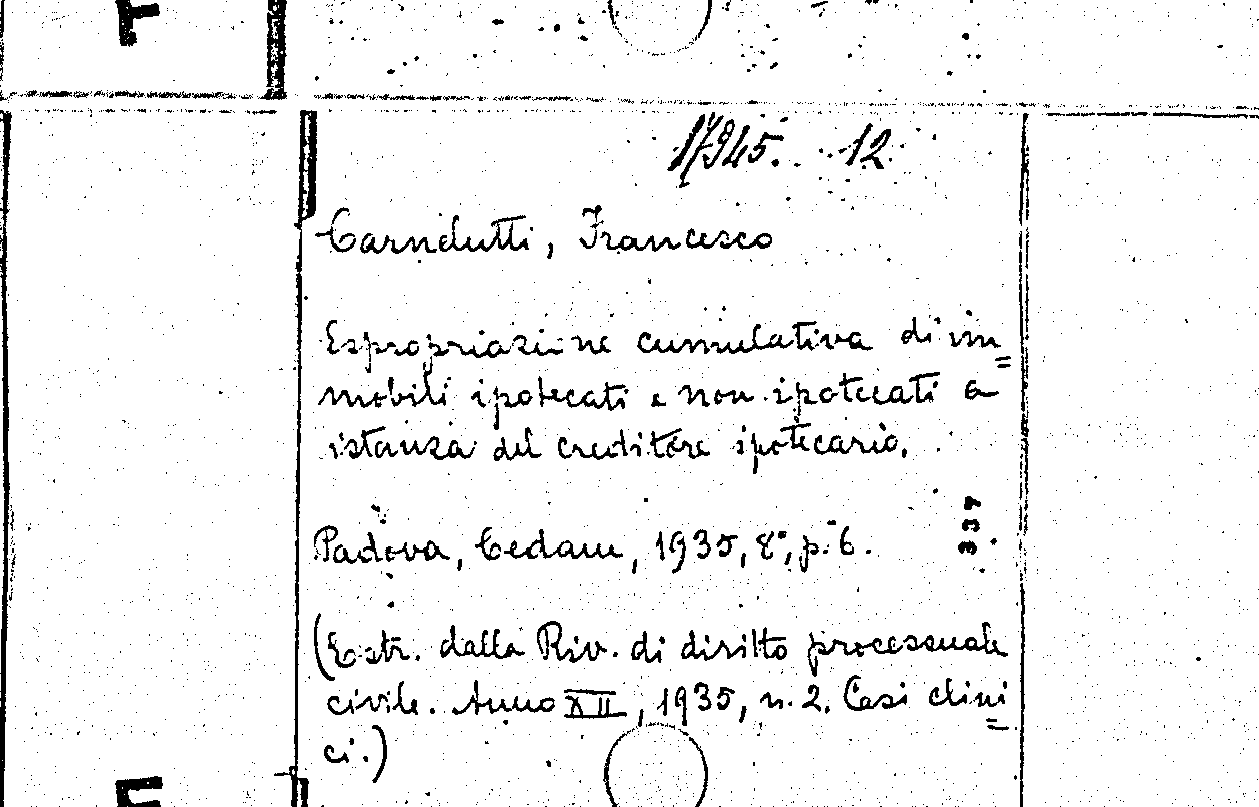 17945. 12
Carnelutti, Francesco
Espropriazione cumulativa di im=
mobili ipotecati e non ipotecati a
istanza del creditore ipotecario.
Padova, Cedam, 1935, 8°, p. 6.
337
(Estr. dalla Riv. di diritto processuale
civile. Anno XII, 1935, n. 2. Casi clini=
ci.)